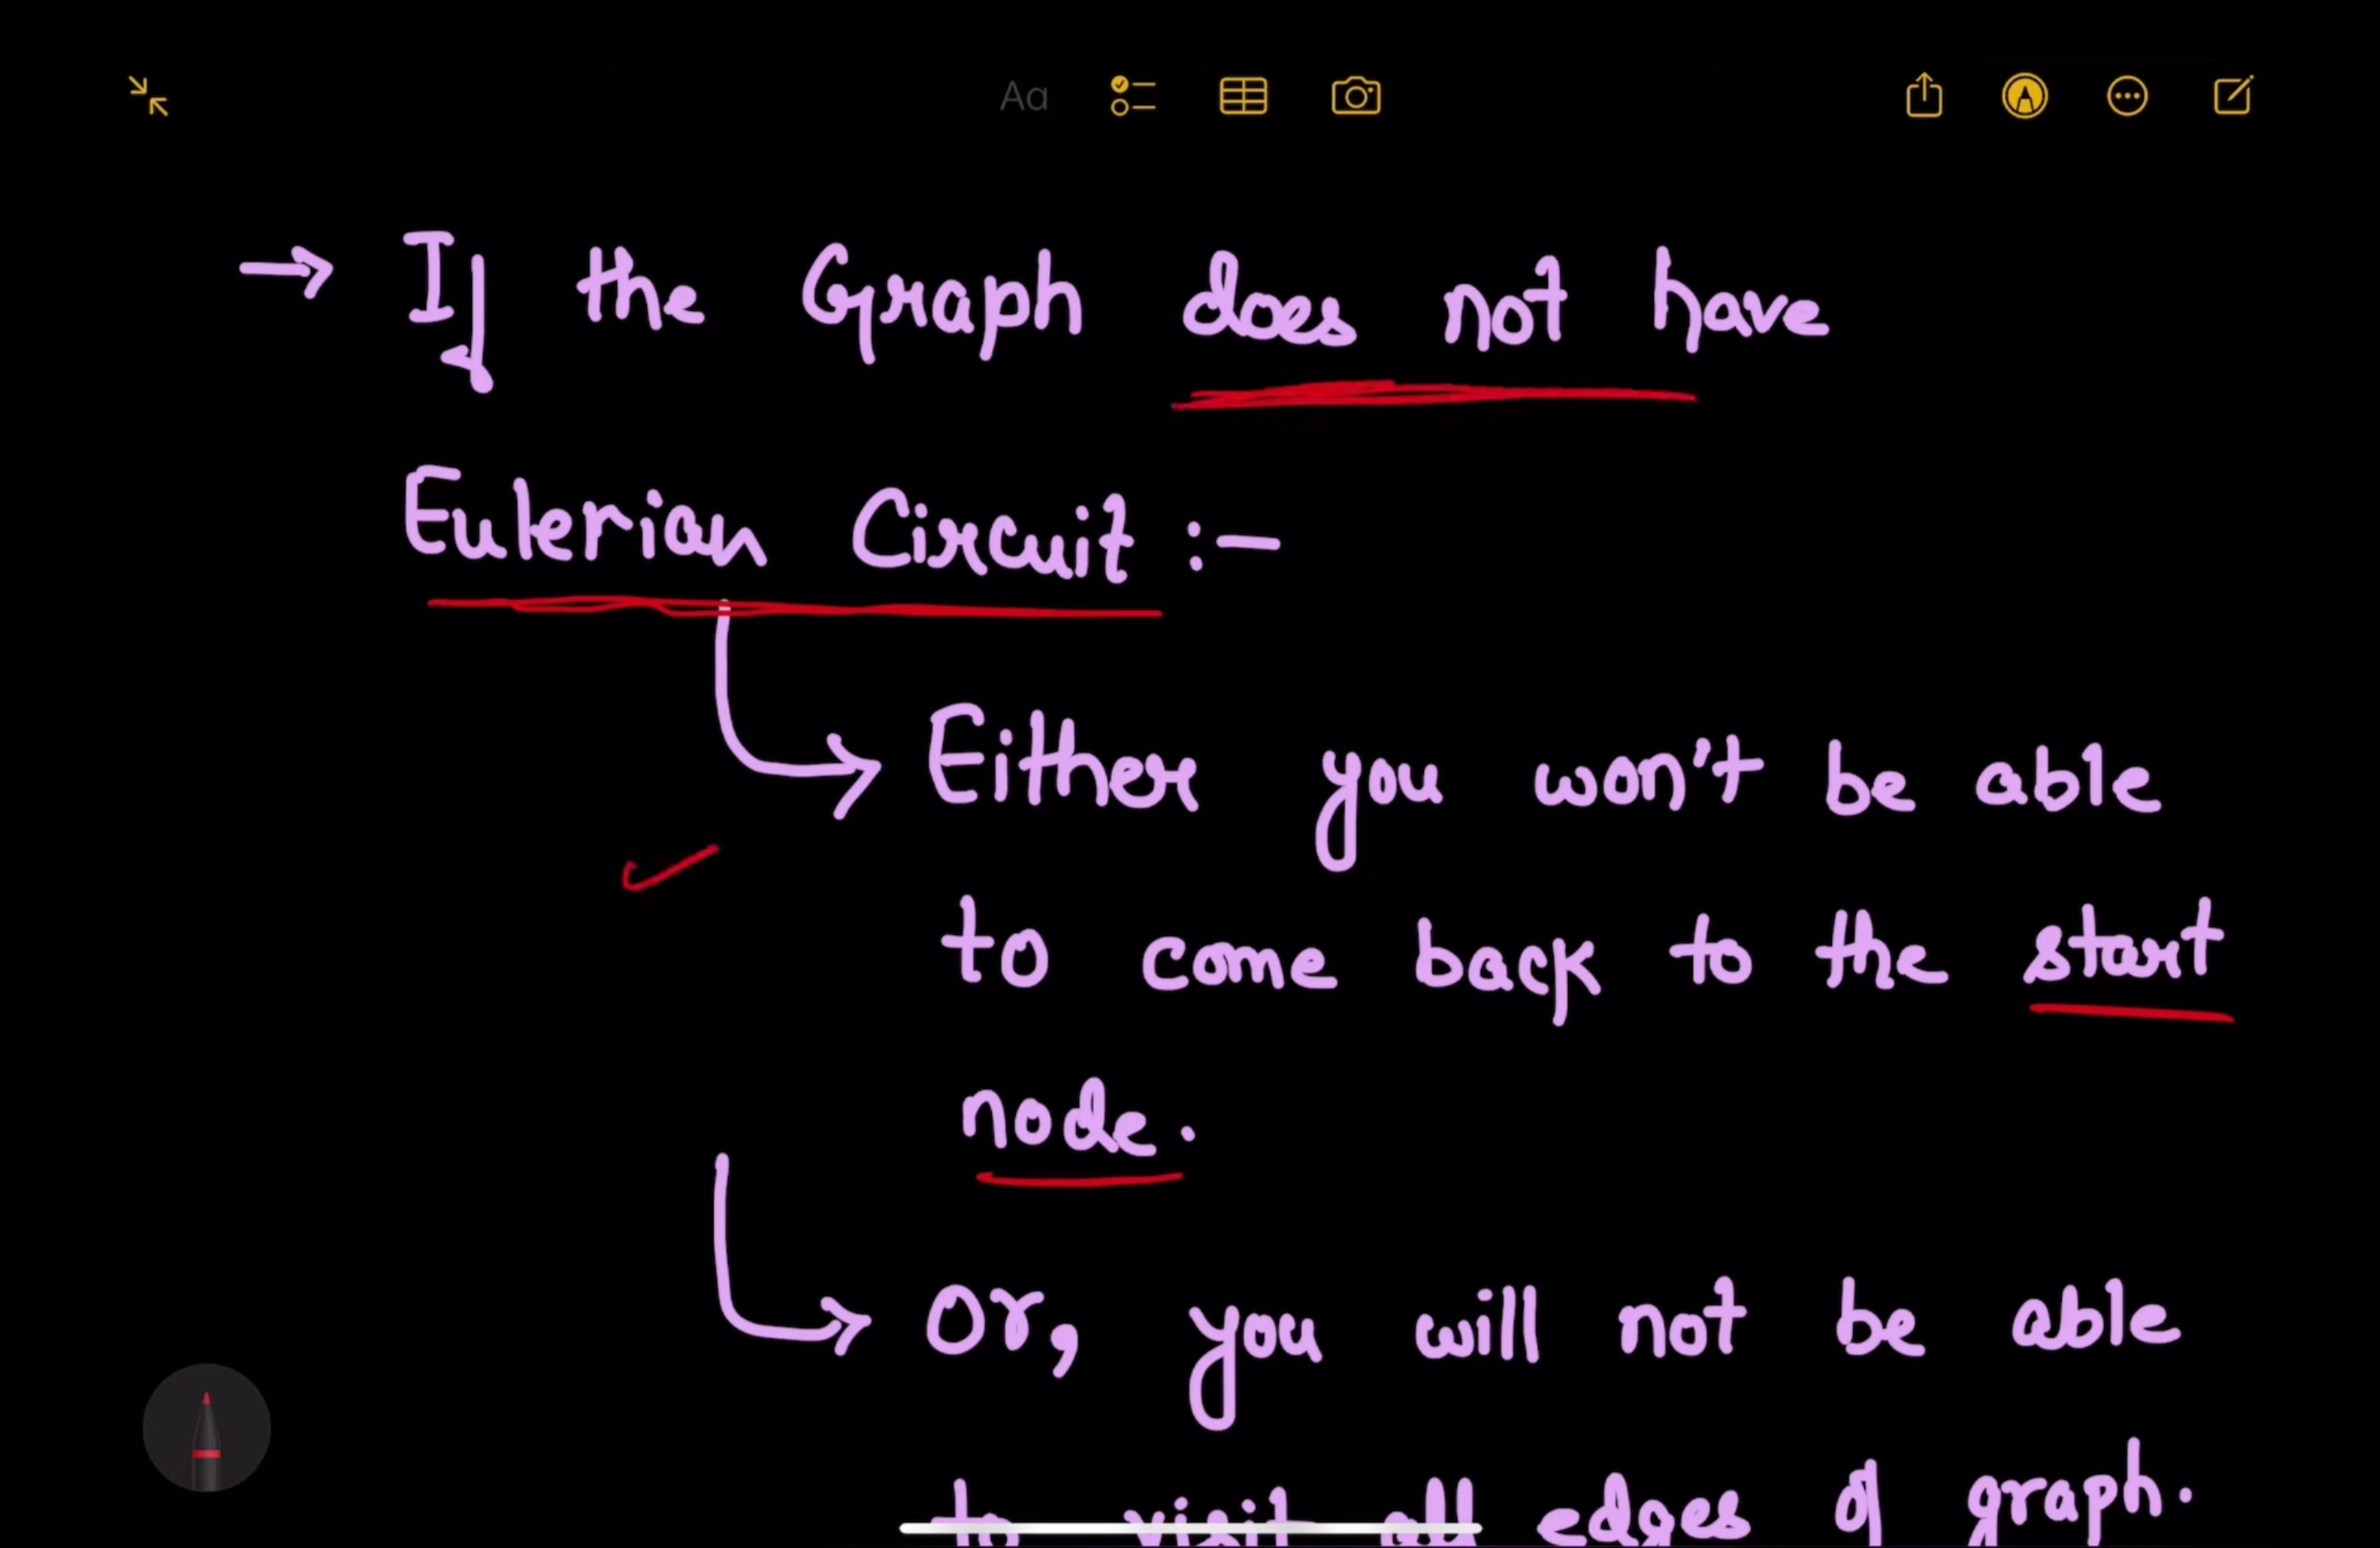 Aa
→ If the Graph does not have
Eulerian Circuit :-
Either you won't be able
to come back to the start
node.
Or, you will not be able
to visit all edges of graph.